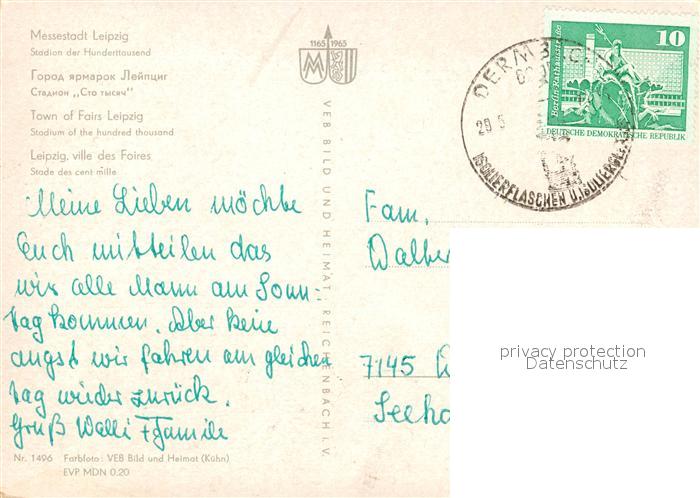 Messestadt Leipzig
Stadion der Hunderttausend
Город ярмарок Лейпциг
Стадион „Сто тысяч“
Town of Fairs Leipzig
Stadium of the hundred thousand
Leipzig, ville des Foires
Stade des cent mille
1165 1965
M
VEB BILD UND HEIMAT, REICHENBACH I. V.
10
Berlin-Rathausstraße
DEUTSCHE DEMOKRATISCHE REPUBLIK
DERMBACH
28 5
ISOLIERFLASCHEN U.
Meine Lieben möchte
Euch mitteilen das
wir alle Mann am Sonn-
tag kommen. Aber keine
angst wir fahren am gleichen
tag wieder zurück.
Gruß Walli + Famile
Fam.
Walter
7145
Seeh
privacy protection
Datenschutz
Nr. 1496 Farbfoto: VEB Bild und Heimat (Kühn)
EVP MDN 0.20